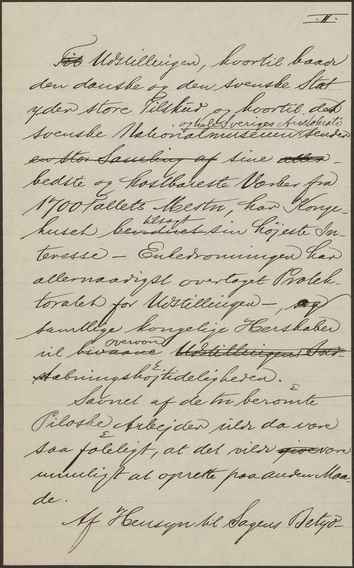 II.
Til Udstillingen, hvortil baade
den danske og den svenske Stat
yder store Tilskud og hvortil det
og hele Sveriges Aristokrati
svenske Nationalmuseum sender
en stor Samling af sine aller
bedste og kostbareste Værker fra
1700 Tallets Mestre, har Konge-
tilsagt
huset sin højeste In-
teresse – Enkedronningen har
allernaadigst overtaget Protek-
toratet for Udstillingen –, og
samtlige kongelige Herskaber
overvære
vil bivaane Udstillingens Ind-
højtideligheden.
Savnet af de to berømte
Piloske Arbejder vilde da være
saa føleligt, at det vilde være
umuligt at oprette paa anden Maa-
de.
Af Hensyn til Sagens Betyd-